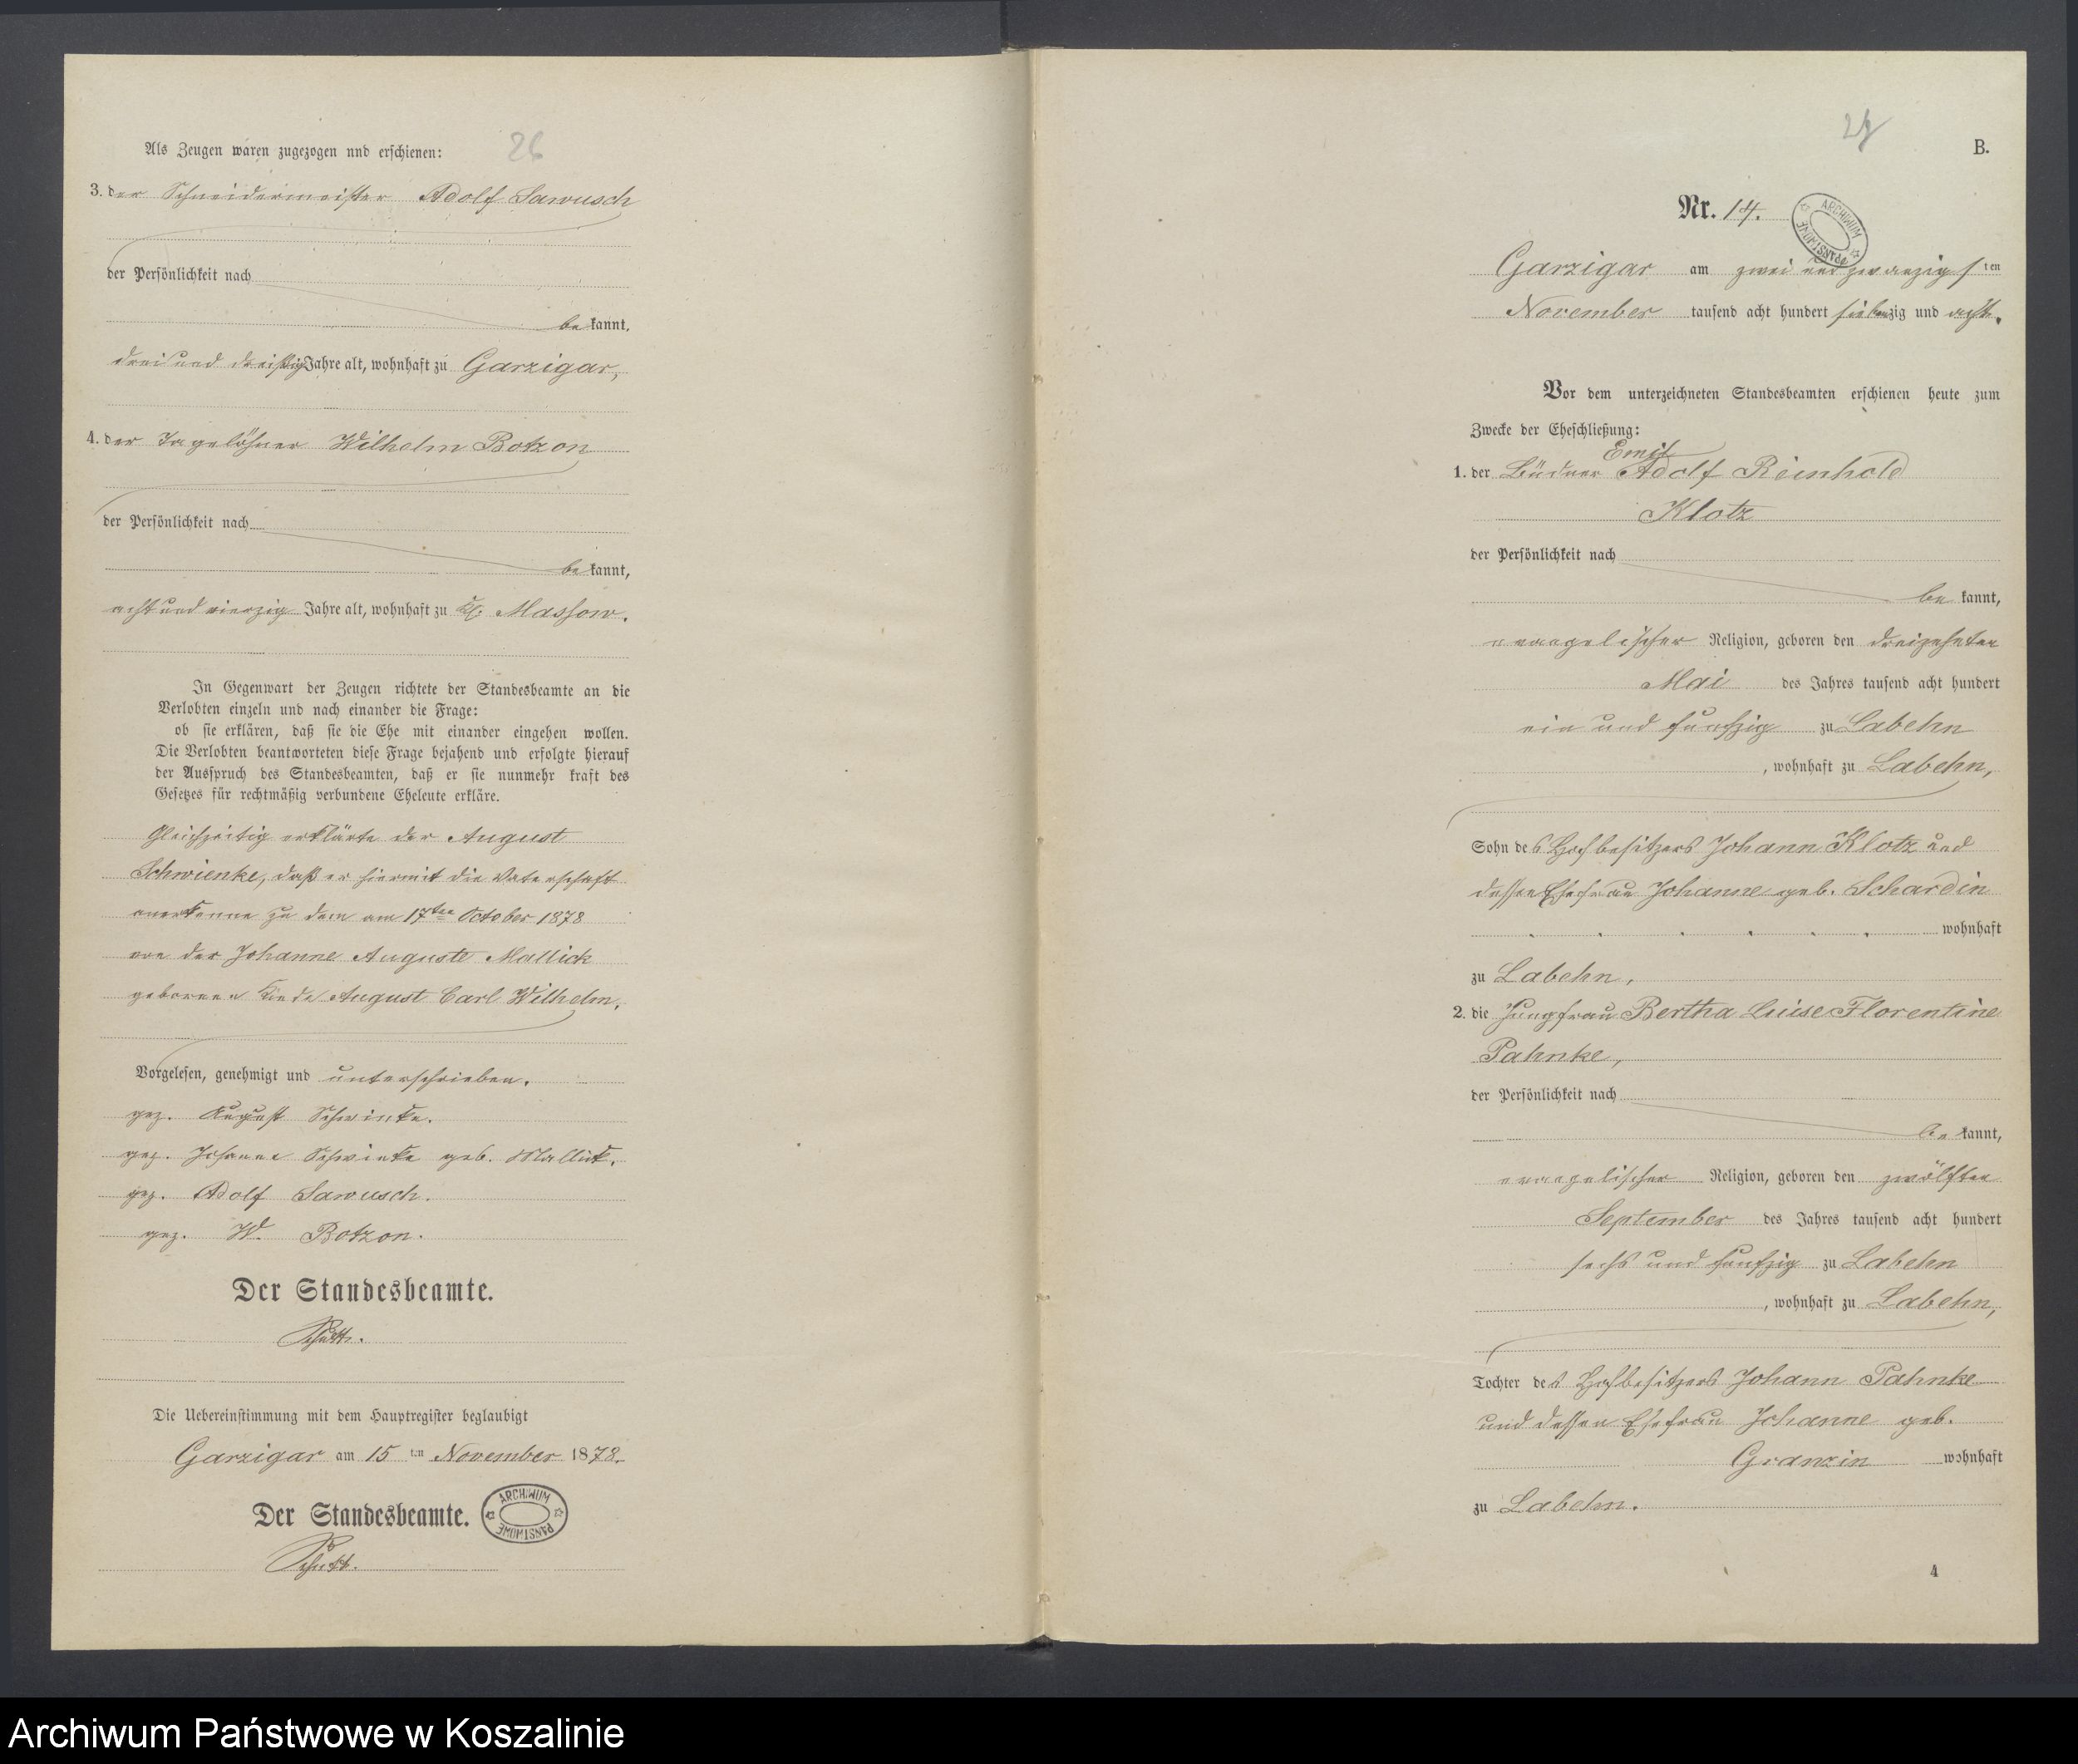 26
Als Zeugen waren zugezogen nnd erschienen:
3. der Schneidermeister Adolf Sawusch
der Persönlichkeit nach
be kannt,
drei und dreißig Jahre alt, wohnhaft zu Garzigar,
4. der Tagelöhner Wilhelm Botzon
der Persönlichkeit nach
be kannt,
acht und vierzig Jahre alt, wohnhaft zu Kl. Massow.
In Gegenwart der Zeugen richtete der Standesbeamte an die
Verlobten einzeln und nach einander die Frage:
ob sie erklären, daß sie die Ehe mit einander eingehen wollen.
Die Verlobten beantworteten diese Frage bejahend und erfolgte hierauf
der Ausspruch des Standesbeamten, daß er sie nunmehr kraft des
Gesetzes für rechtmäßig verbundene Eheleute erkläre.
Gleichzeitig erklärte der August
Schwienke, daß er hiermit die Vaterschaft
anerkenne zu dem am 17ten October 1878
von der Johanne Auguste Mallick
geborenen Kinde August Carl Wilhelm.
Vorgelesen, genehmigt und unterschrieben.
gez. August Schwinke.
gez. Johanne Schwinke geb. Mallick.
gez. Adolf Sawusch.
gez. W. Botzon.
Der Standesbeamte.
Die Uebereinstimmung mit dem Hauptregister beglaubigt
Garzigar am 15 ten November 1878.
Der Standesbeamte.
ARCHIWUM PAŃSTWOWE
B.
Nr. 14.
ARCHIWUM PAŃSTWOWE
Garzigar am zwei und zwanzigsten
November tausend acht hundert siebenzig und acht.
Vor dem unterzeichneten Standesbeamten erschienen heute zum
Zwecke der Eheschließung:
Emil
1. der Büdner Adolf Reinhold
Klotz
der Persönlichkeit nach
be kannt,
evangelischer Religion, geboren den dreizehnten
Mai des Jahres tausend acht hundert
ein und funfzig zu Labehn
, wohnhaft zu Labehn,
Sohn des Hofbesitzers Johann Klotz und
dessen Ehefrau Johanne geb. Schardin
wohnhaft
zu Labehn,
2. die Jungfrau Bertha Luise Florentine
Pahnke,
der Persönlichkeit nach
be kannt,
evangelischer Religion, geboren den zwölften
September des Jahres tausend acht hundert
sechs und funfzig zu Labehn
, wohnhaft zu Labehn,
Tochter des Hofbesitzers Johann Pahnke
und dessen Ehefrau Johanne geb.
Granzin wohnhaft
zu Labehn.
4
Archiwum Państwowe w Koszalinie